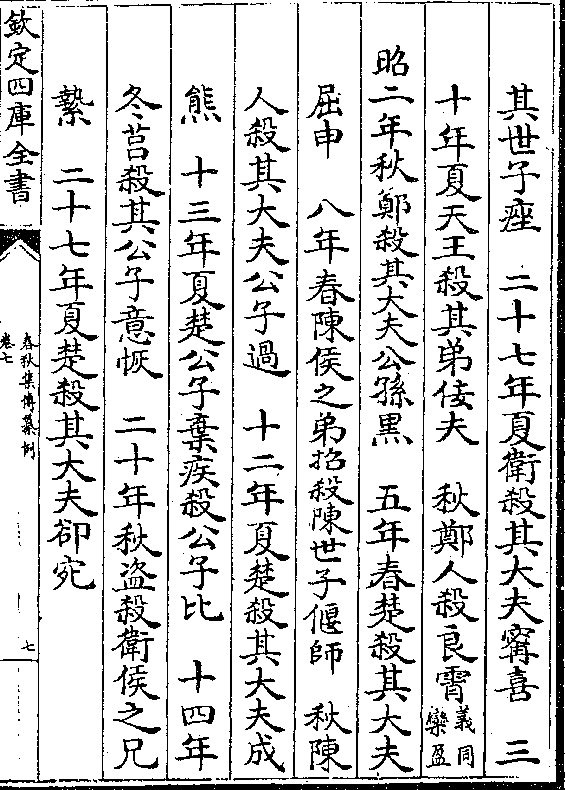 其世子痤　二十七年夏衛殺其大夫甯喜　三
十年夏天王殺其弟佞夫　秋鄭人殺良霄義同欒盈
昭二年秋鄭殺其大夫公孫黒　五年春楚殺其大夫
屈申　八年春陳侯之弟招殺陳世子偃師　秋陳
人殺其大夫公子過　十二年夏楚殺其大夫成
熊　十三年夏楚公子棄疾殺公子比　十四年
冬莒殺其公子意恢　二十年秋盜殺衛侯之兄
縶　二十七年夏楚殺其大夫郤宛
欽定四庫全書
春秋集傳纂例
卷七
七